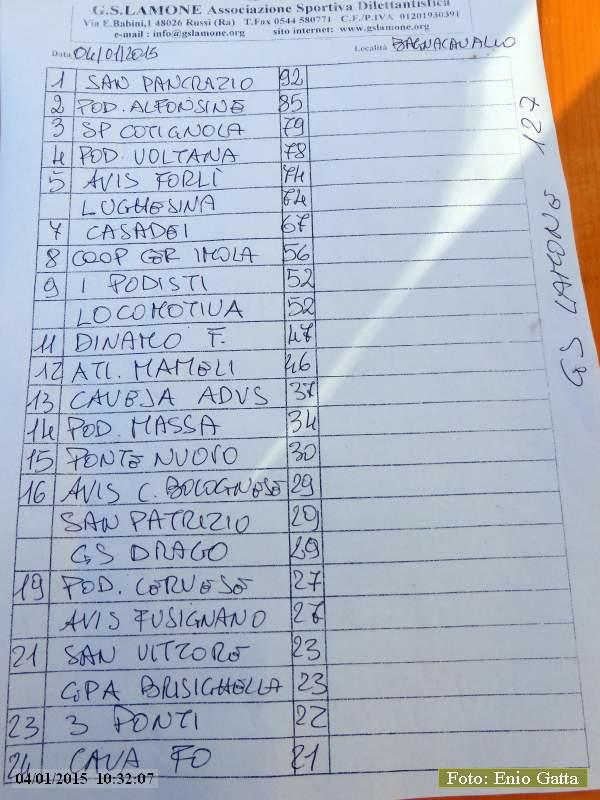 G.S.LAMONE Associazione Sportiva Dilettantistica
Via E.Babini,1 48026 Russi (Ra) T.Fax 0544 580771 C.F./P.IVA 01201930391
e-mail : info@gslamone.org sito internet: www.gslamone.org
Data 04/01/2015 Località BAGNACAVALLO
1 SAN PANCRAZIO 92
2 POD. ALFONSINE 85
3 SP COTIGNOLA 79
4 POD. VOLTANA 78
5 AVIS FORLÌ 74
LUGHESINA 74
7 CASADEI 67
8 COOP CER IMOLA 56
9 I PODISTI 52
LOCOMOTIVA 52
11 DINAMO F. 47
12 ATL. MAMELI 46
13 CAVEJA ADVS 37
14 POD. MASSA 34
15 PONTE NUOVO 30
16 AVIS C. BOLOGNESE 29
SAN PATRIZIO 29
GS DRAGO 29
19 POD. CERVESE 27
AVIS FUSIGNANO 27
21 SAN VITTORE 23
GPA BRISIGHELLA 23
23 3 PONTI 22
24 CAVA FO 21
GS LAMONE 127
04/01/2015 10:32:07
Foto: Enio Gatta